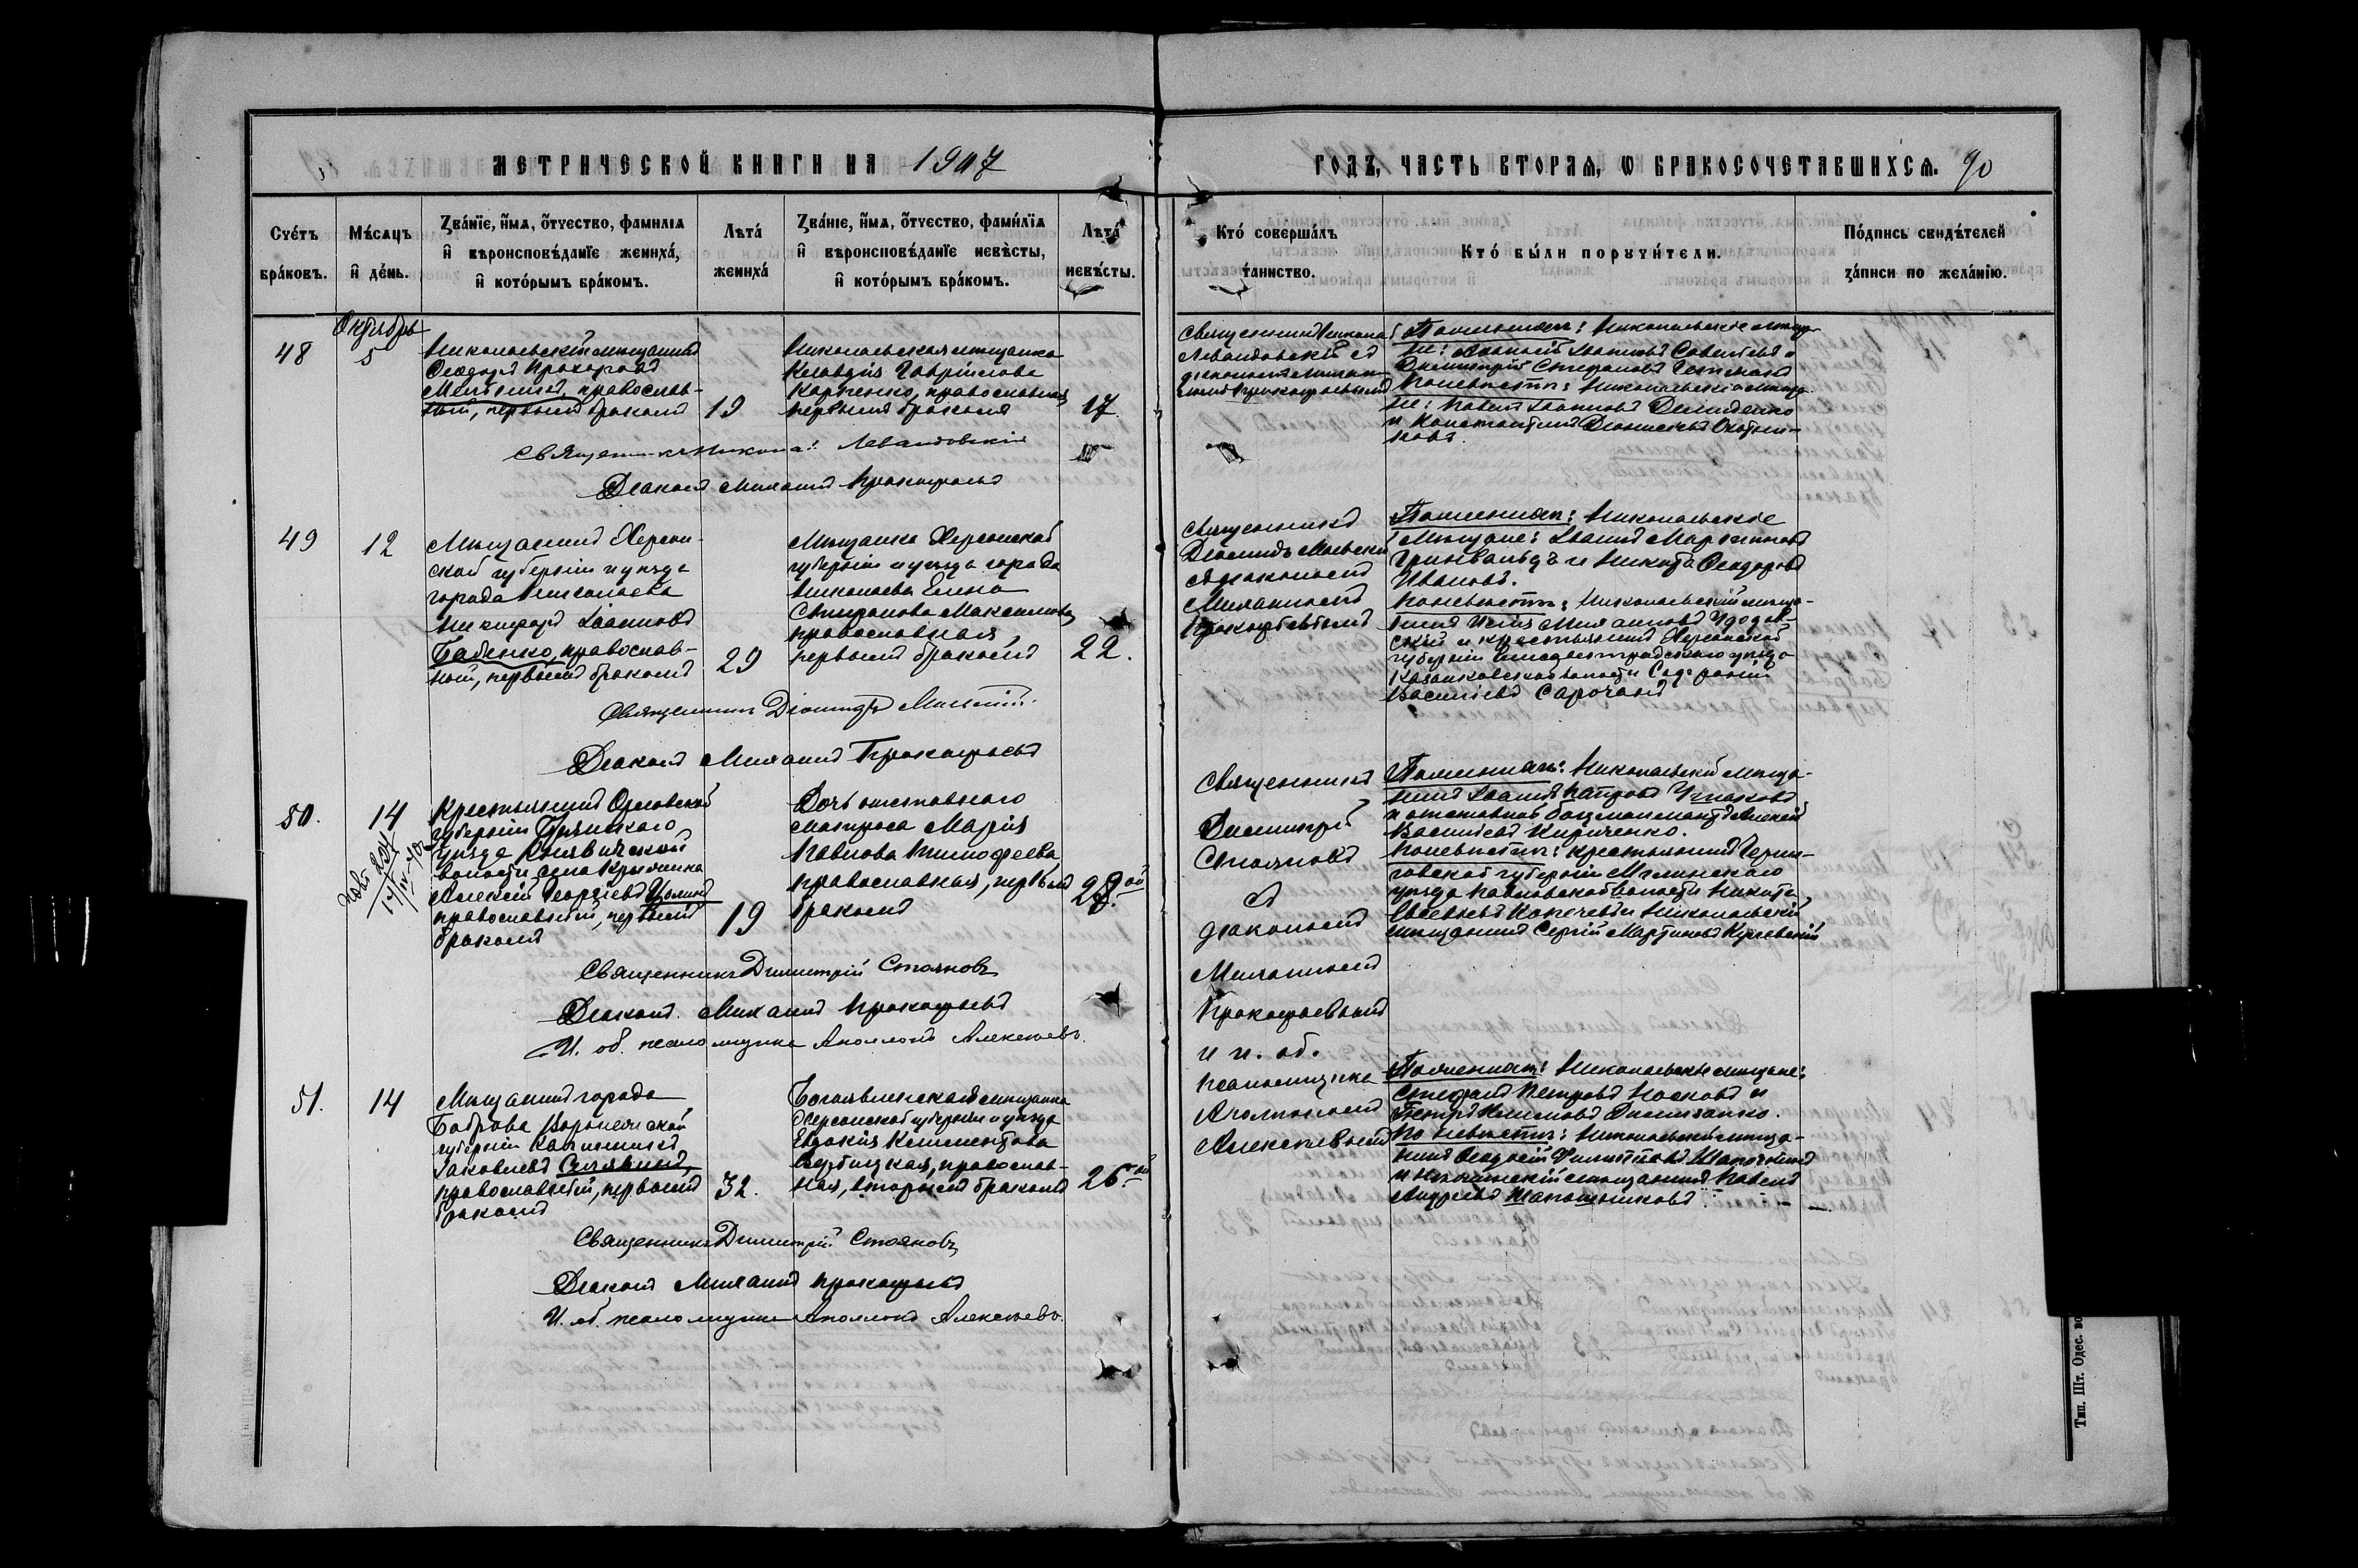 МЕТРИЧЕСКОЙ КНИГИ НА 1907
ГОДЪ, ЧАСТЬ ВТОРАЯ, Ѡ БРАКОСОЧЕТАВШИХСЯ. 90
Счетъ браковъ.
Мѣсяцъ и день.
Званіе, имя, отчество, фамилія
и вѣроисповѣданіе жениха,
и которымъ бракомъ.
Лѣта жениха
Званіе, имя, отчество, фамилія
и вѣроисповѣданіе невѣсты,
и которымъ бракомъ.
Лѣта невѣсты.
Кто совершалъ
таинство.
Кто были поручители.
Подпись свидѣтелей
записи по желанію.
48
Октябрь
5
Николаевскій мѣщанинъ
Ѳеодоръ Прохоровъ
православ-
ный, первымъ бракомъ
19
Николаевская мѣщанка
Клавдія Гаврилова
Карпенко, православная,
первымъ бракомъ
17.
Священникъ Николай
Левандовскій съ
діакономъ Миха-
иломъ Прокофьевымъ
По женихѣ: Николаевскіе мѣща-
не: Іоанновъ Савельевъ и
Димитрій Стефановъ
По невѣстѣ: Николаевскіе мѣща-
не: Павелъ Іоанновъ Демиденко
и Константинъ Діонисіевъ Охотни-
ковъ.
Священникъ Николай Левандовскій
Діаконъ Михаилъ Прокофьевъ
49
12
Мѣщанинъ Херсон-
ской губерніи и уѣзда
города Николаева
Никифоръ Іоанновъ
Бабенко, православ-
ный, первымъ бракомъ
29
Мѣщанка Херсонской
губерніи и уѣзда города
Николаева Елена
Стефанова Максимова,
православная,
первымъ бракомъ
22.
Священникъ
Діомидъ
съ діакономъ
Михаиломъ
Прокофьевымъ
По женихѣ: Николаевскіе
мѣщане: Іоаннъ Мартиновъ
Гринвальдъ и Никита Ѳеодоровъ
Ивановъ.
По невѣстѣ: Николаевскій мѣща-
нинъ Илія Михаиловъ
и крестьянинъ Херсонской
губерніи Елисаветградскаго уѣзда
Казанковской волости Софроній
Василіевъ Сарочанъ
Священникъ Діомидъ
Діаконъ Михаилъ Прокофьевъ
50.
14
Крестьянинъ Орловской
губерніи Брянскаго
уѣзда
волости села Крыловка
Алексій Георгіевъ
православный, первымъ
бракомъ
19
Дочь отставного
матроса Марія
Павлова Тимофеева
православная, первымъ
бракомъ
Священникъ
Димитрій
Стояновъ
съ
діакономъ
Михаиломъ
Прокофьевымъ
и и. об.
псаломщика
Аполлономъ
Алексѣевымъ
По женихѣ: Николаевскій мѣща-
нинъ Іоаннъ Петровъ Ушаковъ
и отставной боцманматъ Алексій
Василіевъ Кириченко.
По невѣстѣ: крестьянинъ Черни-
говской губерніи Мглинскаго
уѣзда Павловской волости Никита
Евсеевъ Копачевъ и Николаевскій
мѣщанинъ Сергій Мартиновъ
Священникъ Димитрій Стояновъ
Діаконъ Михаилъ Прокофьевъ
И. об. псаломщика Аполлонъ Алексѣевъ.
51.
14
Мѣщанинъ города
Боброва Воронежской
губерніи Каллиникъ
Іаковлевъ
православный, первымъ
бракомъ
32.
Богоявленская мѣщанка
Херсонской губерніи и уѣзда
Евдокія Климентова
Вербицкая, православ-
ная, вторымъ бракомъ
26
По женихѣ: Николаевскіе мѣщане:
Стефанъ Петровъ Носковъ и
Петръ
По невѣстѣ: Николаевскій мѣща-
нинъ Филипповъ
и мѣщанинъ Павелъ
Андреевъ Шапошниковъ.
Священникъ Димитрій Стояновъ
Діаконъ Михаилъ Прокофьевъ
И. об. псаломщика Аполлонъ Алексѣевъ.
Тип. Шт. Одес. во